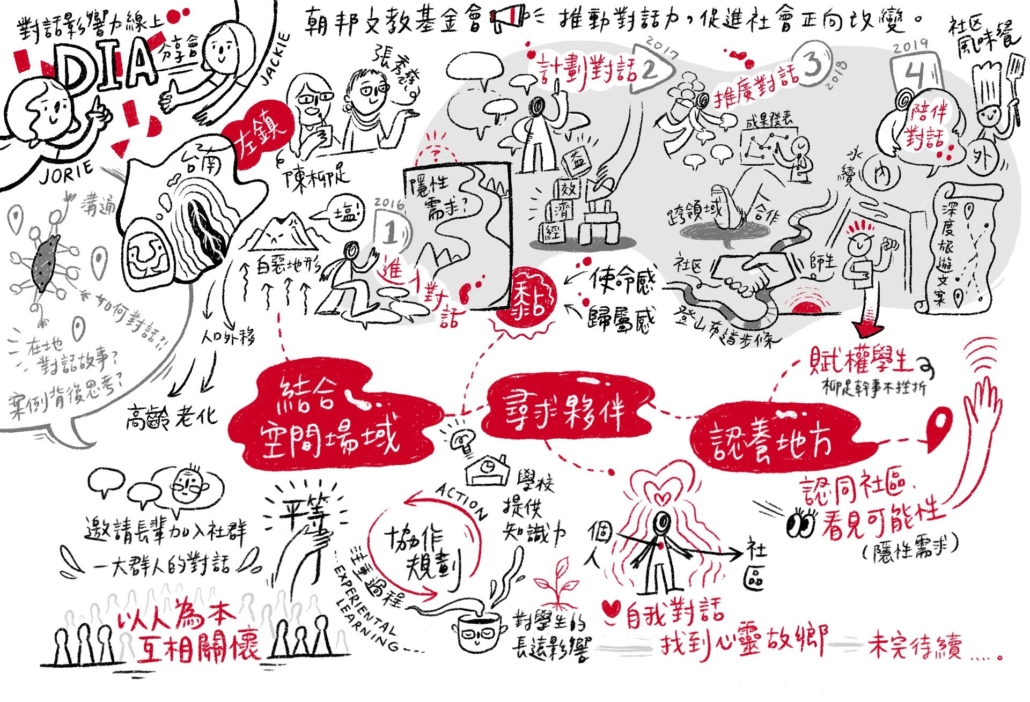 對話影響力線上
分享會
DIA
JACKIE
JORIE
朝邦文教基金會
推動對話力,促進社會正向改變。
左鎮
台南
張秀慈
陳柳足
溝通
如何對話?!
在地
對話故事?
案例背後思考?
塩!
白惡地形
人口外移
高齡老化
2016
1
進入對話
?
隱性
需求?
黏
使命感
歸屬感
2017
計劃對話 2
益
效
濟
經
推廣對話 3
2018
成果發表
跨領域
合作
社区
師生
登山布道步條
2019
4
陪伴
對話
社区
風味餐
永續
內
外
深度旅遊文案
賦權學生
柳足幹事不挫折
結合
空間場域
尋求夥伴
認養地方
認同社區、
看見可能性
(隱性需求)
邀請長輩加入社群
一大群人的對話
平等
以人為本
互相關懷
ACTION
協作
規劃
注重過程
EXPERIENTIAL
LEARNING
學校
提供
知識力
對學生的
長遠影響
個人
社區
自我對話
找到心靈故鄉
未完待續.....。